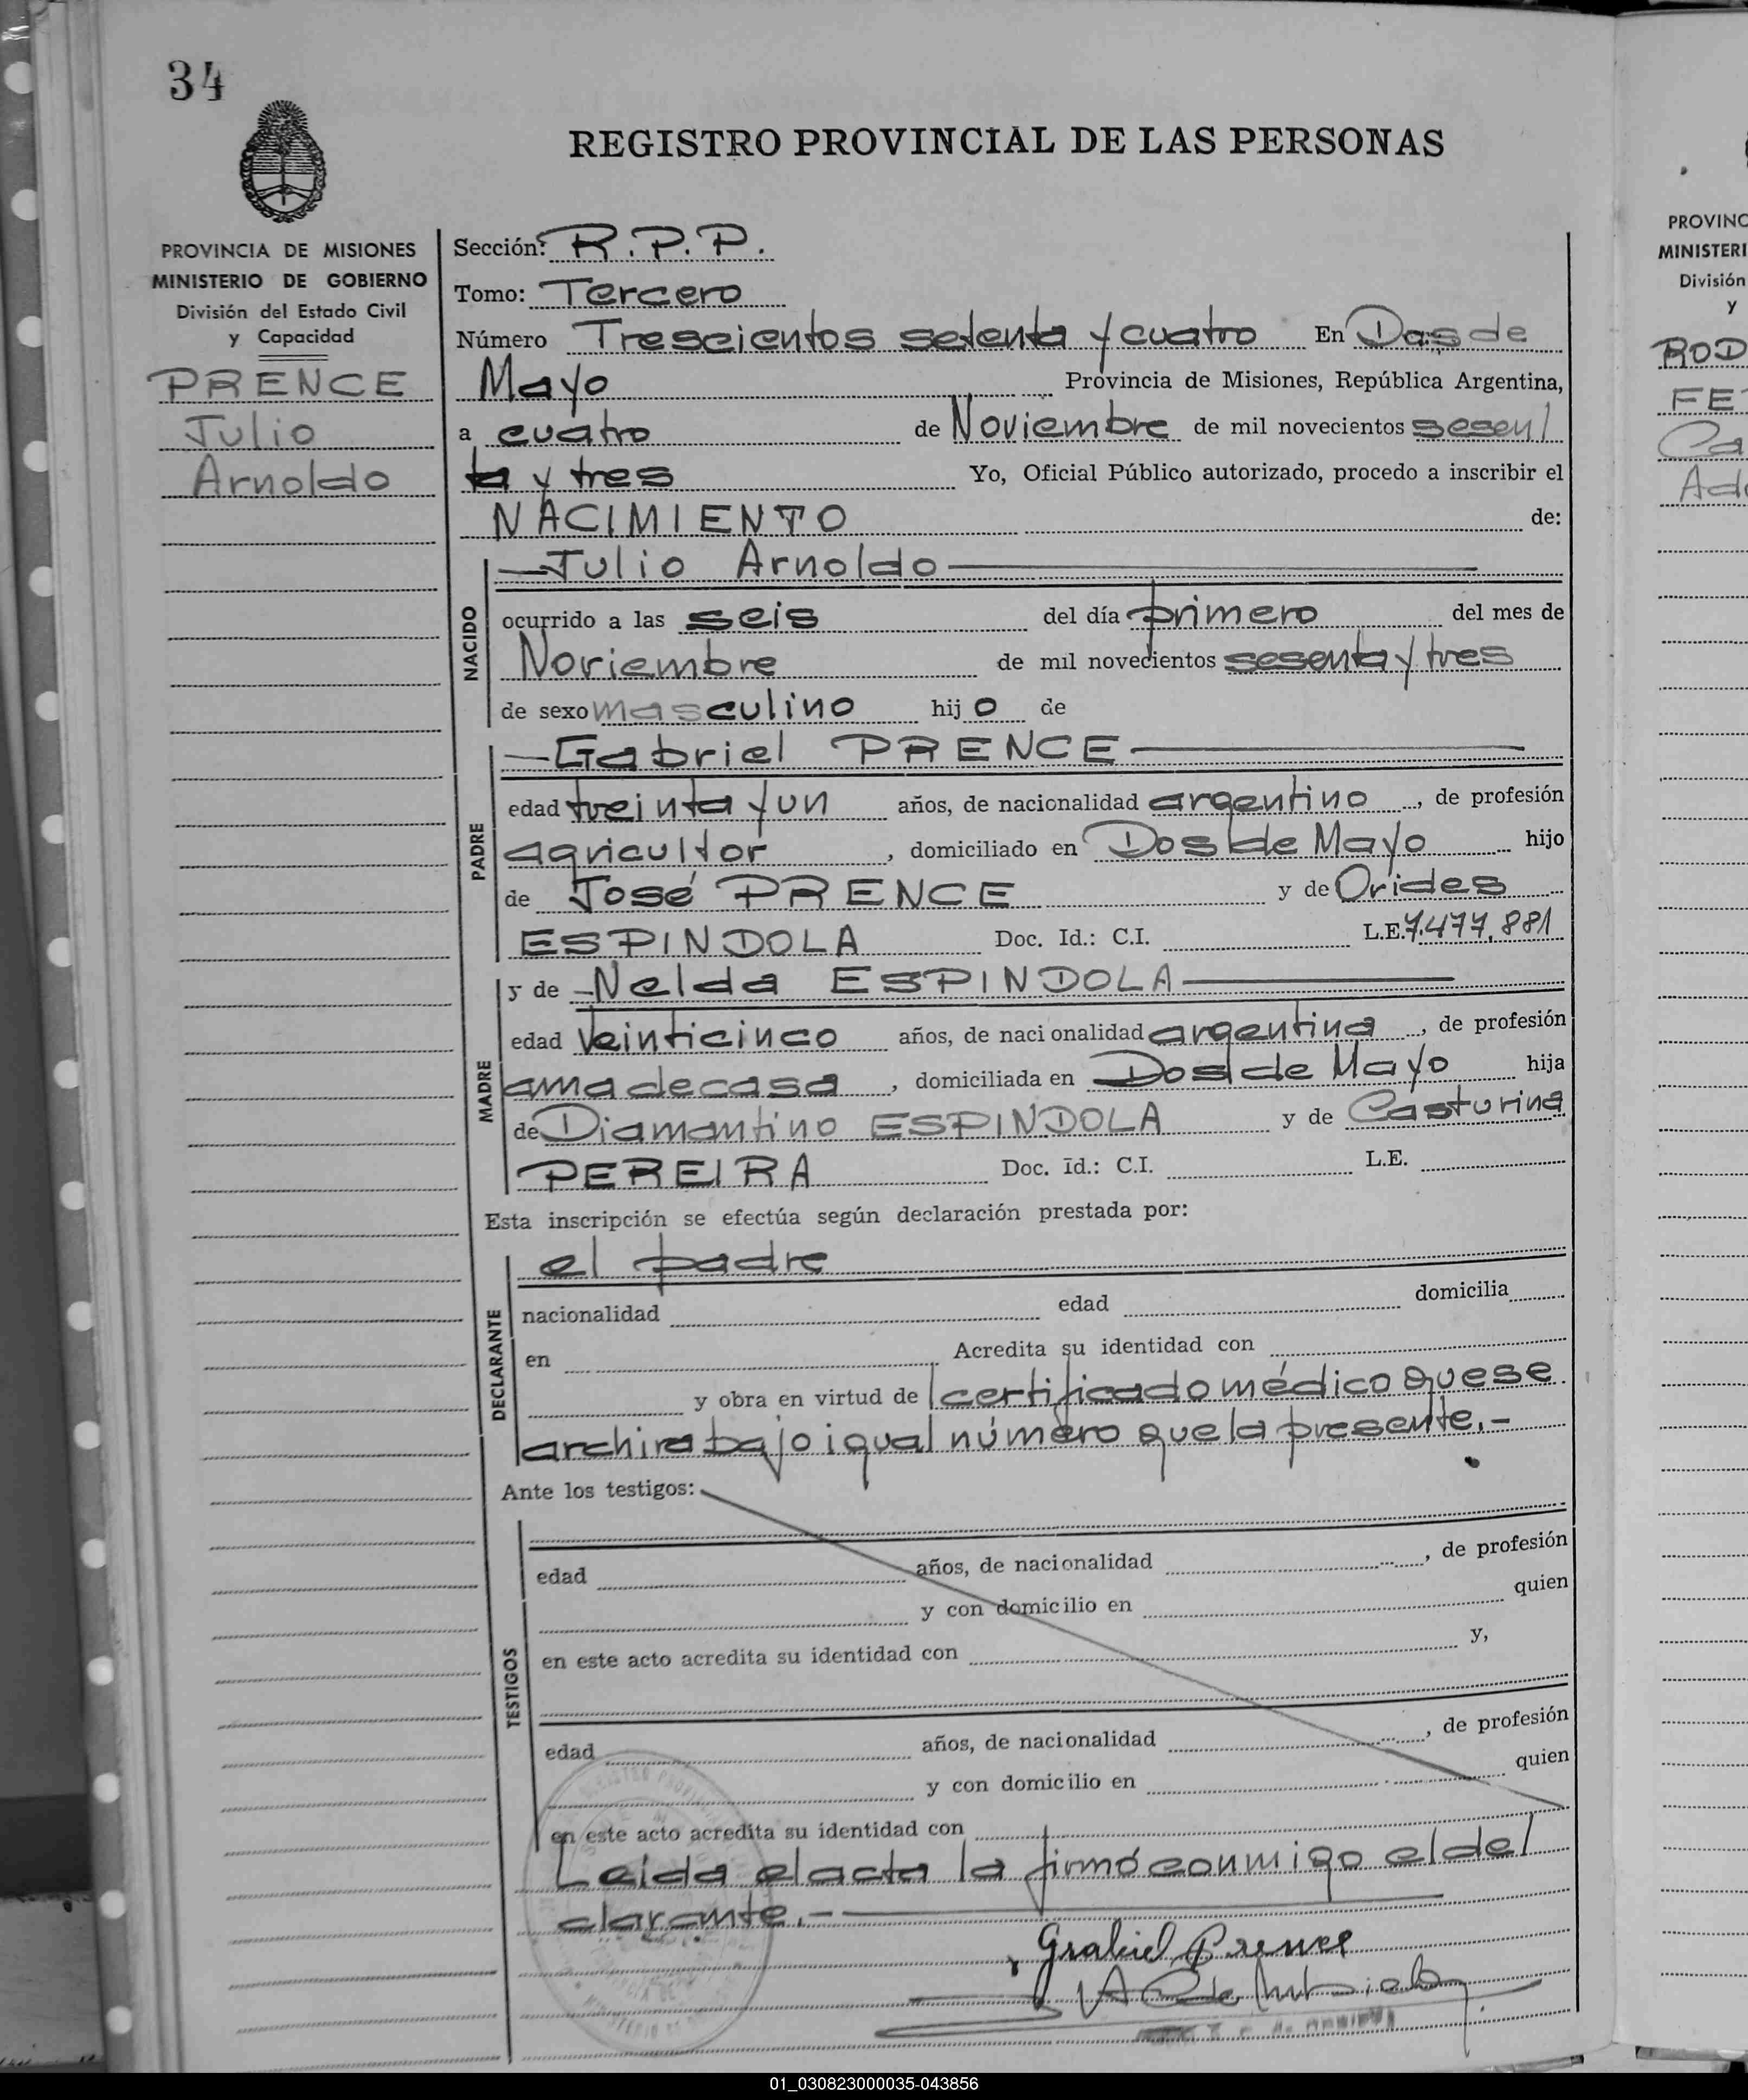 34
REGISTRO PROVINCIAL DE LAS PERSONAS
PROVINCIA DE MISIONES
MINISTERIO DE GOBIERNO
División del Estado Civil
y Capacidad
PRENCE
Julio
Arnoldo
Sección: R.P.P.
Tomo: Tercero
Número Trescientos setenta y cuatro En Dos de
Mayo Provincia de Misiones, República Argentina,
a cuatro de Noviembre de mil novecientos sesen
ta y tres Yo, Oficial Público autorizado, procedo a inscribir el
NACIMIENTO de:
NACIDO
—Julio Arnoldo—
ocurrido a las seis del día primero del mes de
Noviembre de mil novecientos sesenta y tres
de sexo masculino hijo de
PADRE
—Gabriel PRENCE—
edad treinta y un años, de nacionalidad argentino, de profesión
agricultor, domiciliado en Dos de Mayo hijo
de José PRENCE y de Orides
ESPINDOLA Doc. Id.: C.I. L.E. 7.477.881
MADRE
y de —Nelda ESPINDOLA—
edad veinticinco años, de nacionalidad argentina, de profesión
ama de casa, domiciliada en Dos de Mayo hija
de Diamantino ESPINDOLA y de Casturina
PEREIRA Doc. Id.: C.I. L.E.
Esta inscripción se efectúa según declaración prestada por:
DECLARANTE
el padre
nacionalidad edad domicilia
en Acredita su identidad con
y obra en virtud de certificado médico que se
archiva bajo igual número que la presente.-
Ante los testigos:
TESTIGOS
edad años, de nacionalidad , de profesión
y con domicilio en quien
en este acto acredita su identidad con y,
edad años, de nacionalidad , de profesión
y con domicilio en quien
en este acto acredita su identidad con
Leida el acta la firmó conmigo el de
clarante.-
Grabiel Prence
PROVINC
MINISTERI
División
y
ROD
FE
Ca
Ad
01_030823000035-043856